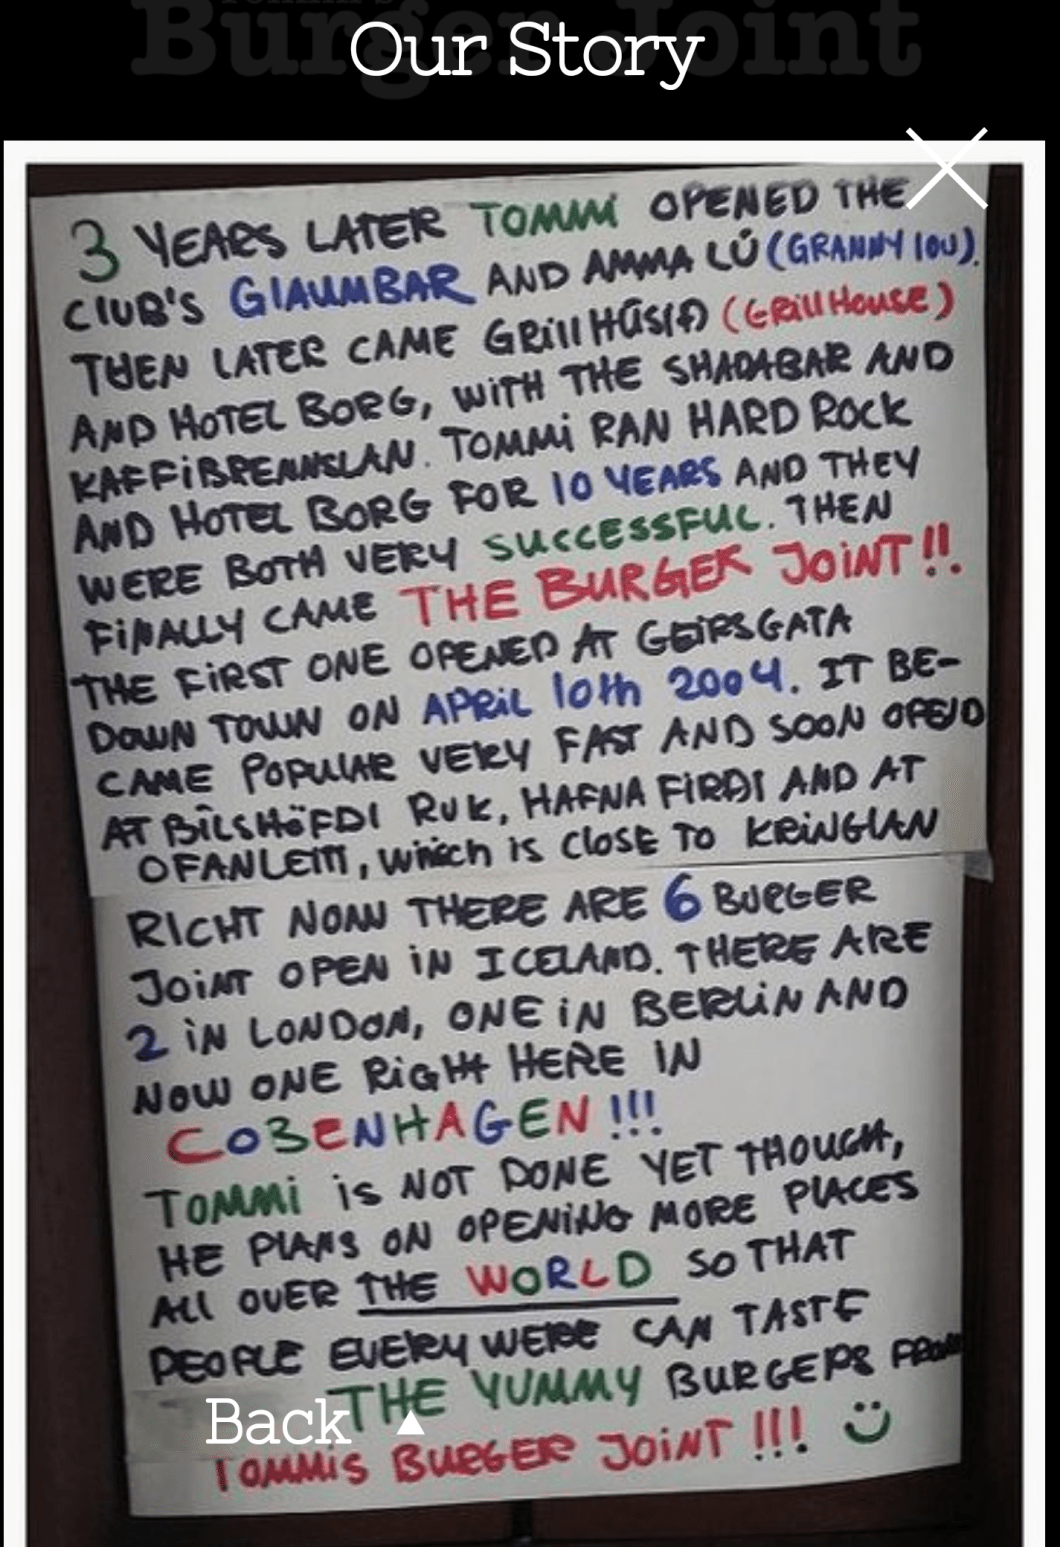 Burger Joint
Our Story
3 YEARS LATER TOMMI OPENED THE
CLUB'S GLAUMBAR AND AMMA LÚ (GRANNY LOU).
THEN LATER CAME GRILLHÚSIÐ (GRILLHOUSE)
AND HOTEL BORG, WITH THE SKADABAR AND
KAFFIBRENNSLAN. TOMMI RAN HARD ROCK
AND HOTEL BORG FOR 10 YEARS AND THEY
WERE BOTH VERY SUCCESSFUL. THEN
FINALLY CAME THE BURGER JOINT!!.
THE FIRST ONE OPENED AT GEIRSGATA
DOWN TOWN ON APRIL 10th 2004. IT BE-
CAME POPULAR VERY FAST AND SOON
AT BÍLSHÖFDI RVK, HAFNA FIRDI AND AT
which is CLOSE TO KRINGLAN
RIGHT NOW THERE ARE 6 BURGER
JOINT OPEN IN ICELAND. THERE ARE
2 IN LONDON, ONE IN BERLIN AND
NOW ONE RIGHT HERE IN
COBENHAGEN!!!
TOMMI IS NOT DONE YET THOUGH,
HE PLANS ON OPENING MORE PLACES
All OVER THE WORLD SO THAT
PEOPLE EVERY WERE CAN TASTE
THE YUMMY BURGERS FROM
Back ▲
TOMMIS BURGER JOINT!!!